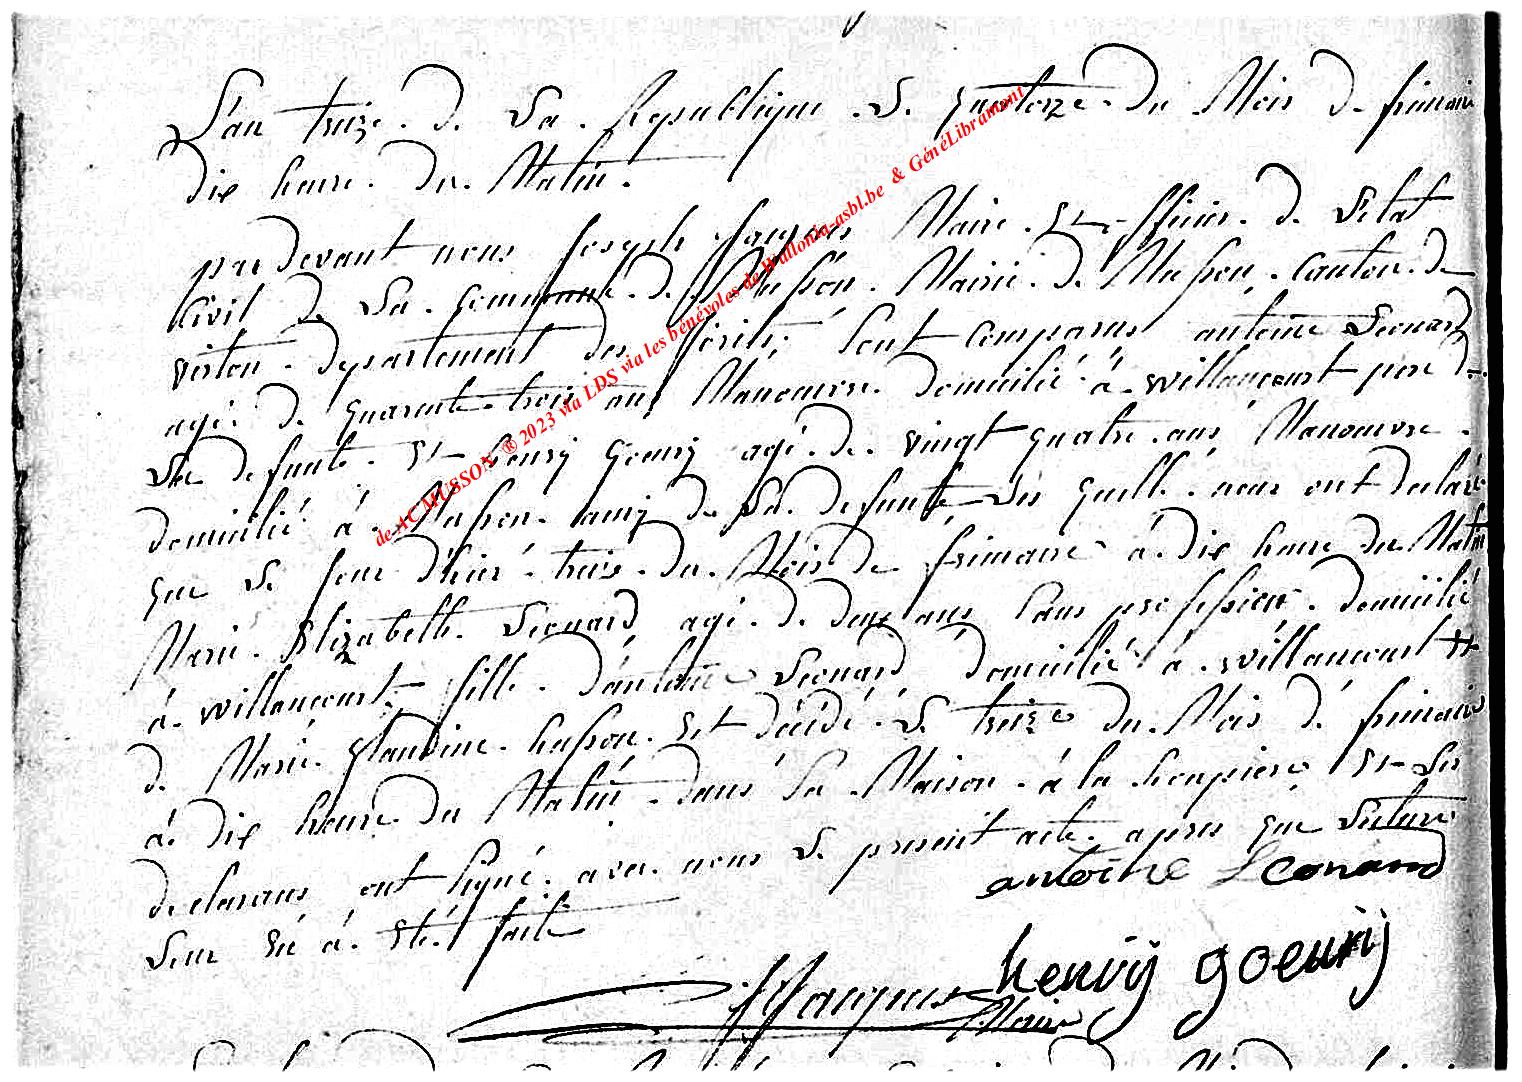 L'an treize de La Republique Le quatorze du Mois de frimair
dix heure du Matin.
par devant nous Joseph Jacques Maire Et officier de L'Etat
Civil de La Commune de Musson Mairie de Musson, Canton de
virton departement des forêts, Sont Comparus antoine Leonard
agé de quarente trois ans Manouvre domicilié à willancourt pere de
La defunte Et henrij Goeurij agé de vingt quatre ans Manouvre
domicilié à Musson amij de La defunte Les quelle nous ont declaré
que Le Jour d'hier trais du Mois de frimaire à dix heure du Matin
Marie Elizabelle Leonard agé de deux ans Sans profession domicilié
à willancourt, fille d'antoine Leonard domicilié à willancourt Et
de Marie Glaudine husson Est décédé Le treize du Mois de frimaire
à dix heure du Matin dans Sa Maison à la Et Les
declarans ont signé avec nous Le present acte apres que Lecture
Leur En à Eté faite
antoine Leonard
henrij goeurij
JJacques
Maire
de AC MUSSON ® 2023 via LDS via les bénévoles de Wallonia-asbl.be & GénéLibramont